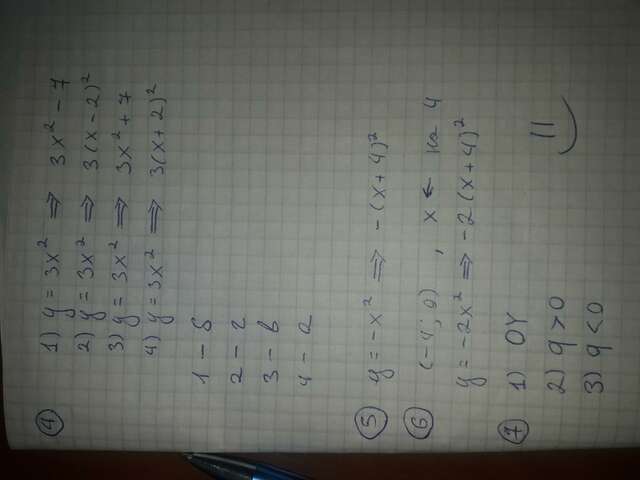 ④ 1) y = 3x² ⇒ 3x² - 7
2) y = 3x² ⇒ 3(x - 2)²
3) y = 3x² ⇒ 3x² + 7
4) y = 3x² ⇒ 3(x + 2)²
1 - б
2 - г
3 - в
4 - а
⑤ y = -x² ⇒ -(x + 4)²
⑥ (-4; 0) , x ← на 4
y = -2x² ⇒ -2(x + 4)²
⑦ 1) OY
2) q > 0
3) q < 0